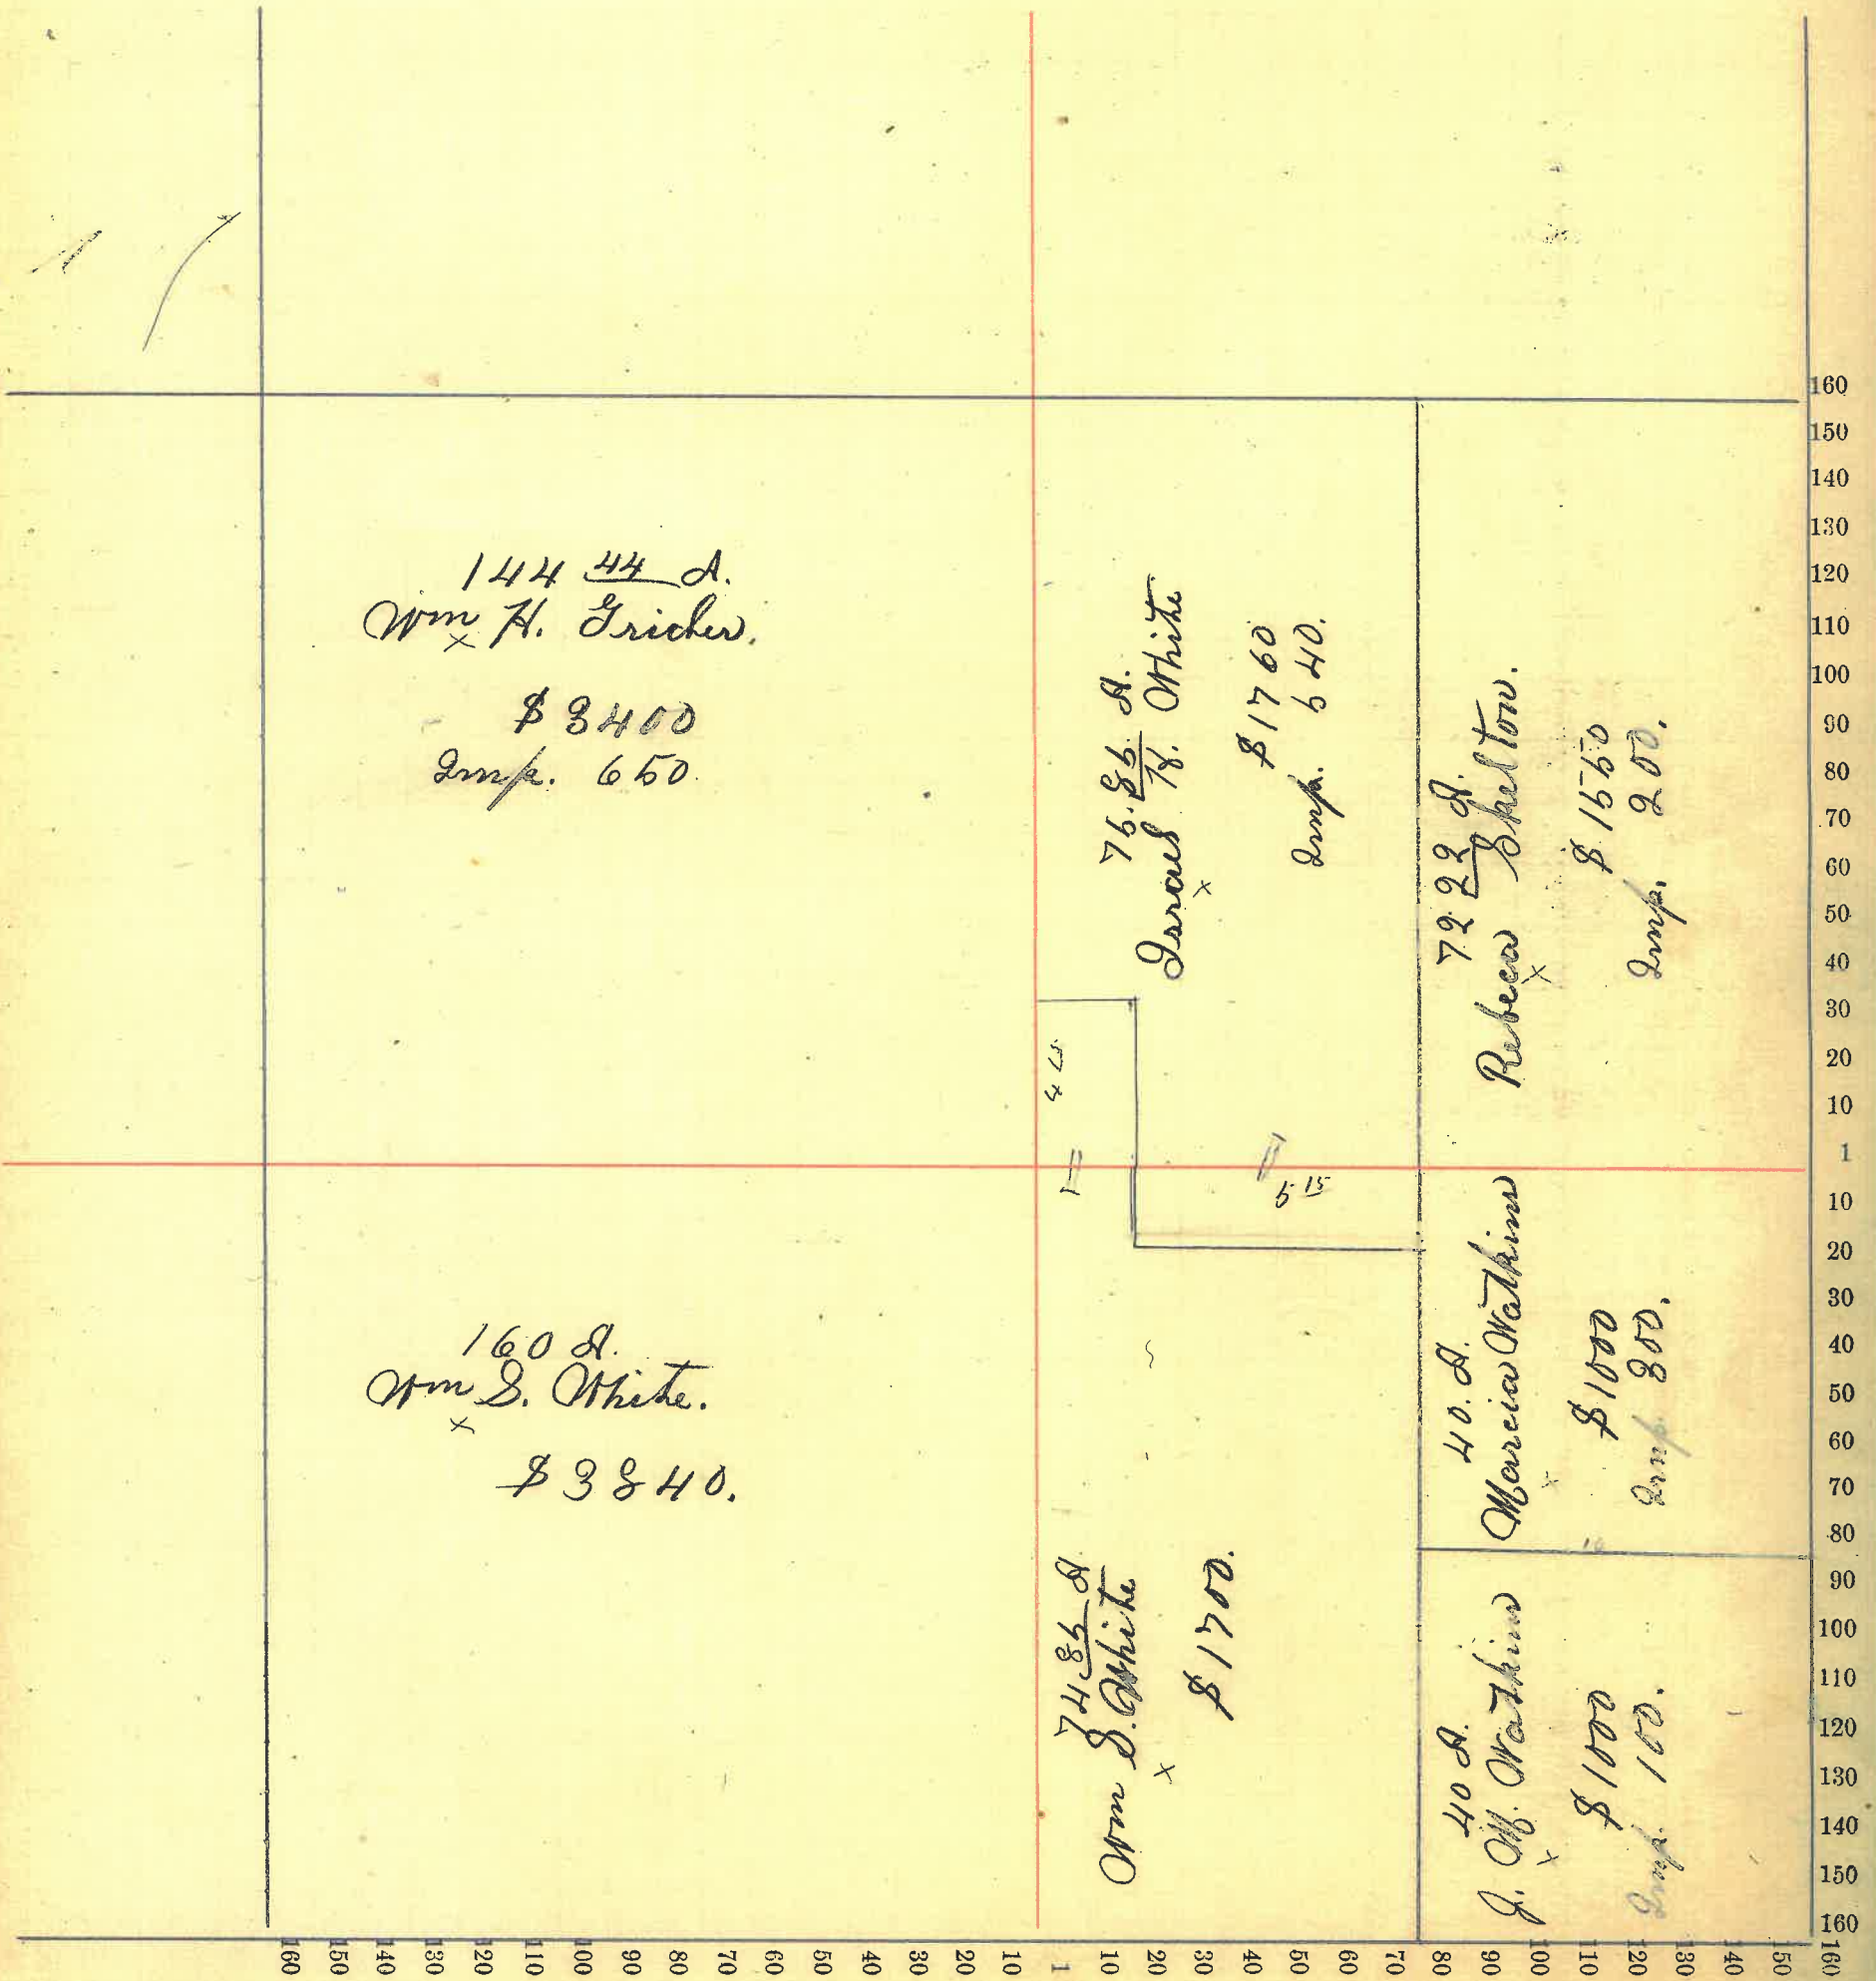 144 44 A.
Wm H. Gricher.
x
$3400
Imp. 650.
160 A.
Wm S. White.
x
$3840.
75.85 A.
Israel H. White
x
$1760
Imp. 540.
4 25
5 15
74 85 A
Wm S. White
x
$1700.
72 22 A.
Rebeca Shelton.
x
$1550
Imp. 200.
40. A.
Marcia Watkins
x
$1000
Imp 300.
40 A.
J. M. Watkins
x
$1000
Imp. 100.
160
150
140
130
120
110
100
90
80
70
60
50
40
30
20
10
1
10
20
30
40
50
60
70
80
90
100
110
120
130
140
150
160
160 150 140 130 120 110 100 90 80 70 60 50 40 30 20 10 1 10 20 30 40 50 60 70 80 90 100 110 120 130 140 150 160